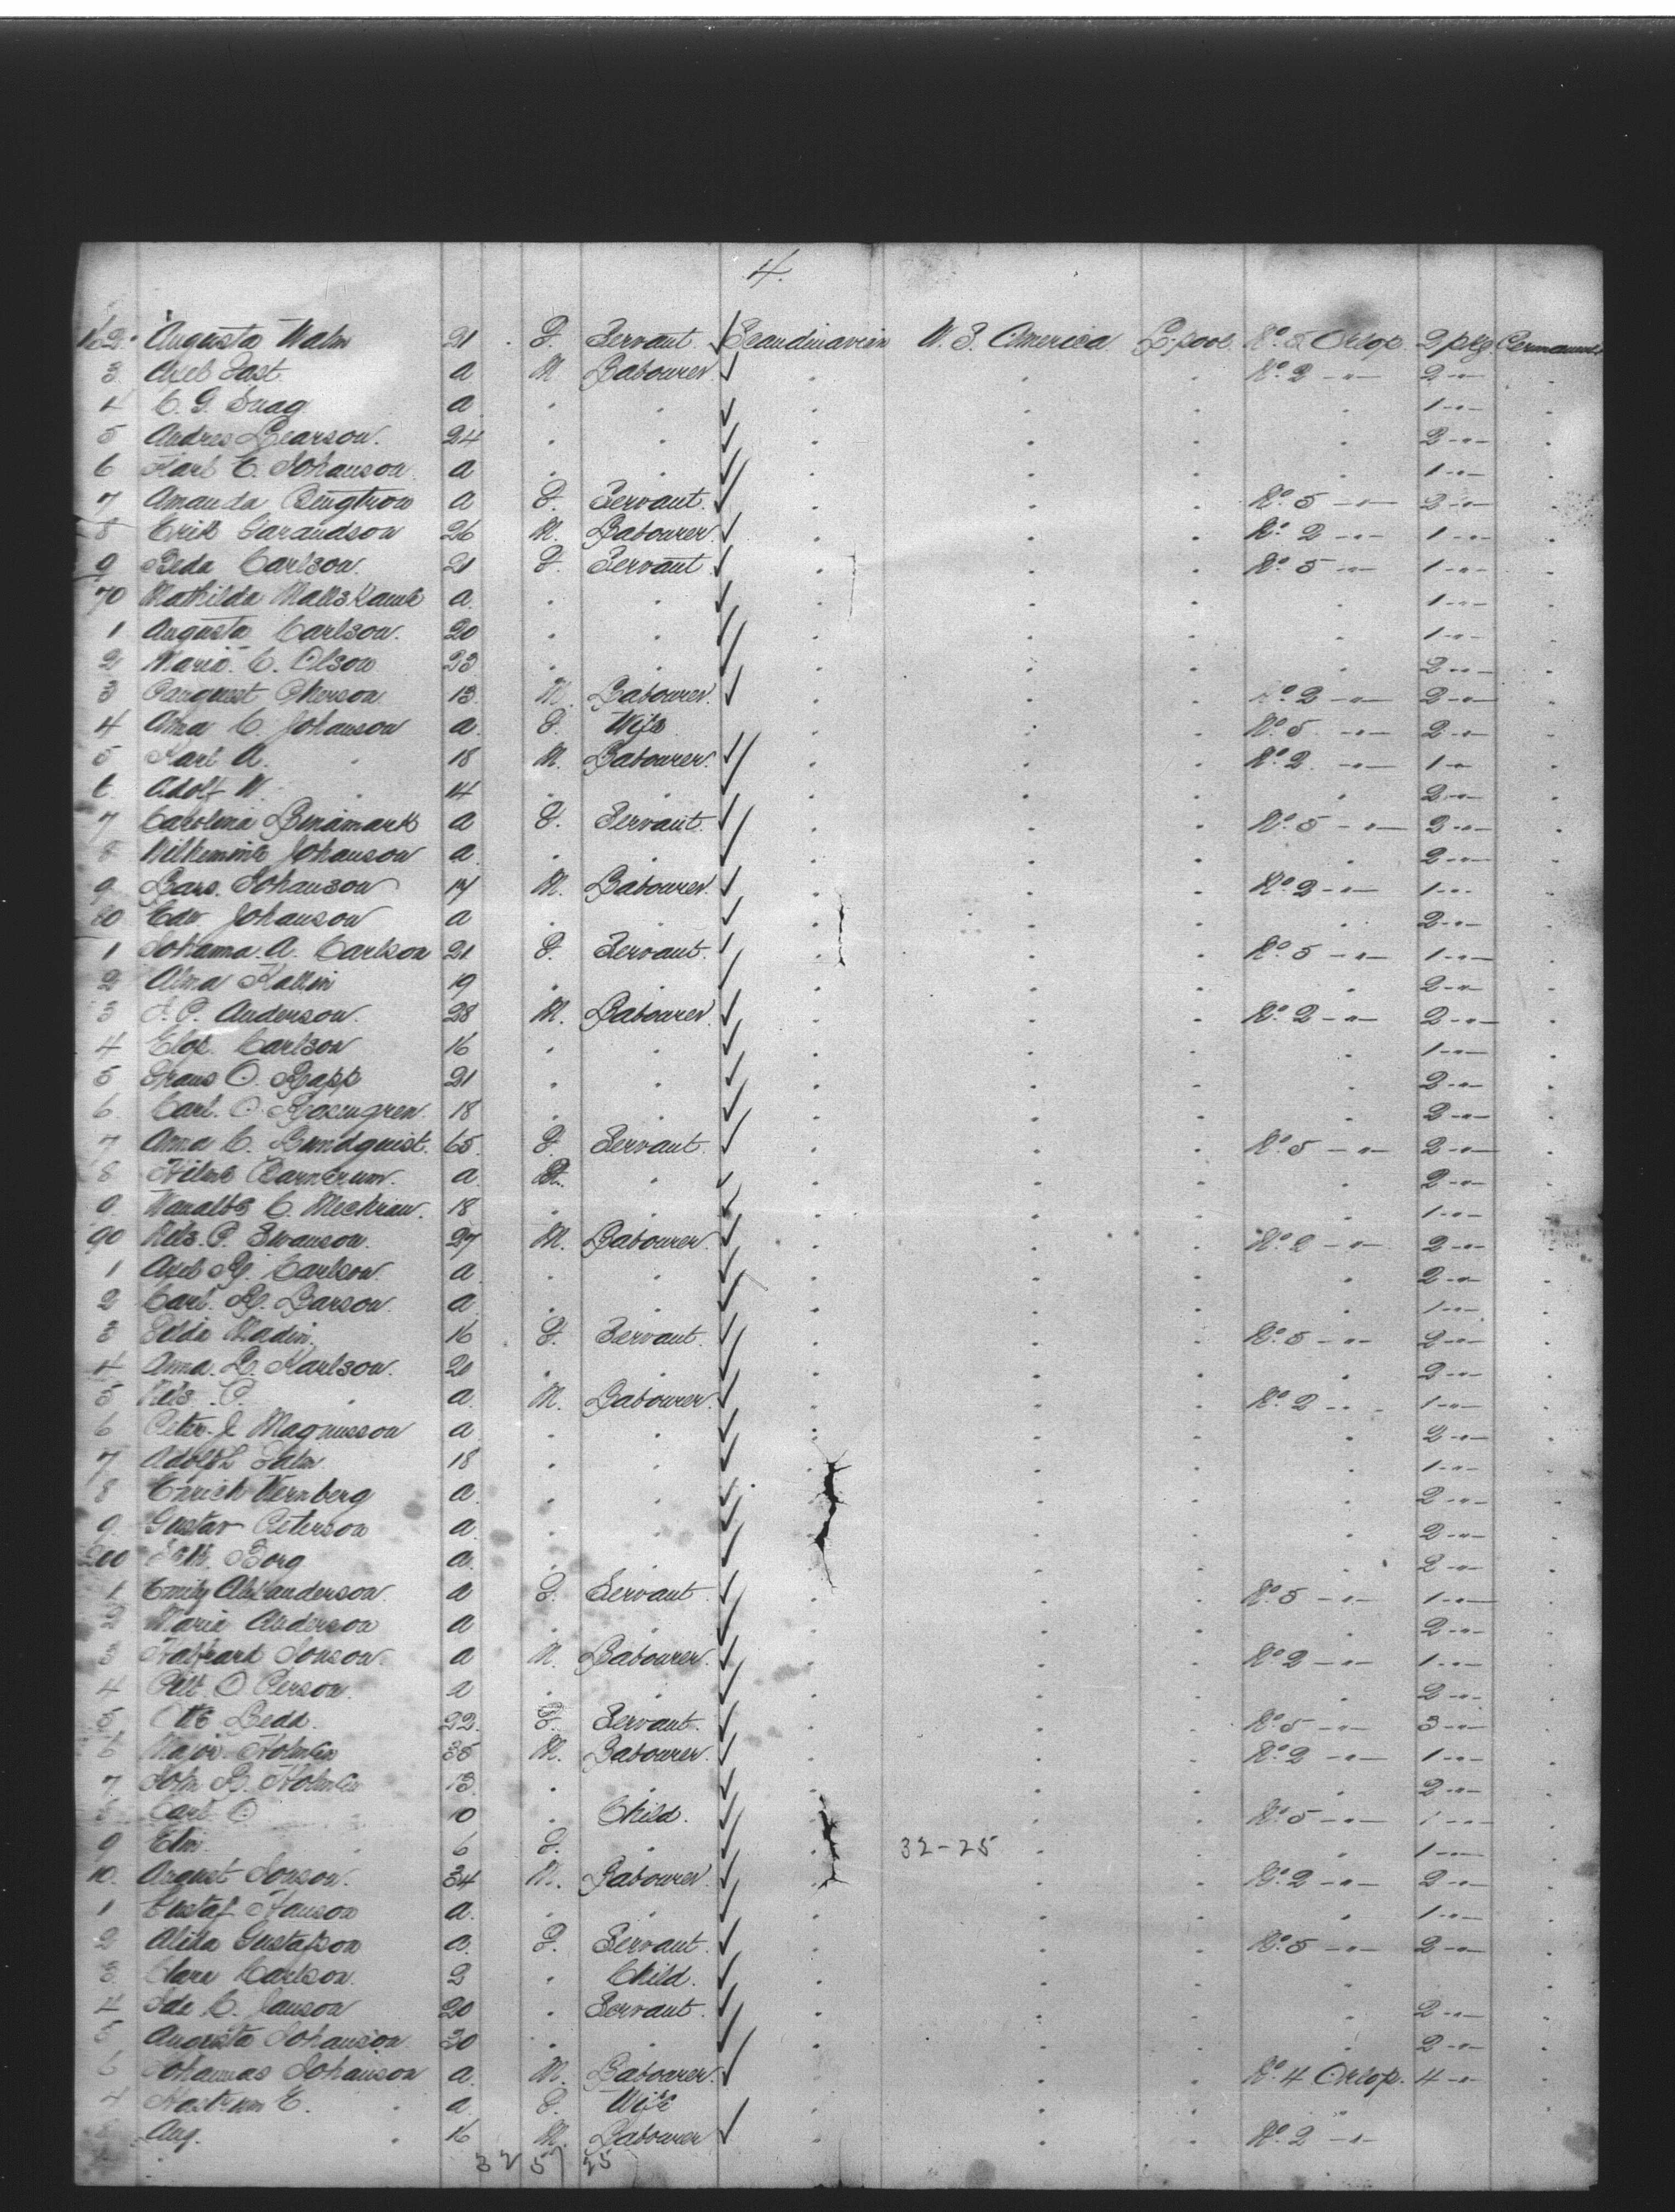 4.
162. Augusta Malm 21 F. Servant Scandinavian U. S. America L.pool No. 5 Orlop. 2 pkg Permanent
3 Axel Fast a M Labourer " " " No. 2 -"- 2 -"-
4 C. G. Snag a " " " " " " 1 -"-
5 Andres Pearson. 24 " " " " " " 2 -"-
6 Karl E. Johanson a " " " " " " 1 -"-
7 Amanda a F. Servant " " " No. 5 -"- 2 -"-
8 Erik 26 M. Labourer " " " No. 2 -"- 1 -"-
9 Beda Carlson. 21 F. Servant " " " No. 5 -"- 1 -"-
70 Mathilda a " " " " " " 1 -"-
1 Augusta Carlson. 20 " " " " " " 1 -"-
2 Maria C. Olson 23 " " " " " " 2 -"-
3 13 M. Labourer " " " No. 2 -"- 2 -"-
4 Anna C. Johanson a. F. Wife " " " No. 5 -"- 2 -"-
5 Karl A. " 18 M. Labourer. " " " No. 2 -"- 1 -"-
6 Adolf W. " 14 " " " " " " 2 -"-
7 Carolina a F. Servant. " " " No. 5 -"- 2 -"-
8 Johanson a. " " " " " " 2 -"-
9 Lars. Johanson 17 M. Labourer. " " " No. 2 -"- 1 -"-
80 Edw Johanson a " " " " " " 2 -"-
1 Johanna. A. Carlson 21 F. Servant. " " " No. 5 -"- 1 -"-
2 Alma Kallin 19 " " " " " " 2 -"-
3 J. P. Anderson. 28 M. Labourer. " " " No. 2 -"- 2 -"-
4 Carlson 16 " " " " " " 1 -"-
5 Frans O. Rapp 21 " " " " " " 2 -"-
6. Carl. O. Rosengren. 18 " " " " " " 2 -"-
7 Anna C. Lundquist. 65. F. Servant. " " " No. 5 -"- 2 -"-
8 a. " " " " " 2 -"-
9. 18 " " " " " " 1 -"-
90 Nils. P. Swanson. 27 M. Labourer. " " " No. 2 -"- 2 -"-
1 Axel Carlson. a " " " " " " 2 -"-
2 Carl. Larson. a. " " " " " " 1 -"-
3 16 F. Servant. " " " No. 5 -"- 2 -"-
4 Anna. L. Karlson. 20 " " " " " " 2 -"-
5 Nils. P. " a. M. Labourer. " " " No. 2 -"- 1 -"-
6 Peter. J. Magnusson a. " " " " " " 2 -"-
7 Adolf 18 " " " " " " 1 -"-
8 Wernberg a. " " " " " " 2 -"-
9. Gustav Peterson a. " " " " " " 2 -"-
200 Borg a. " " " " " " 2 -"-
1 Emily Alexanderson. a F. Servant " " " No. 5 -"- 1 -"-
2 Maria Anderson a " " " " " " 2 -"-
3 Jonson. a M. Labourer. " " " No. 2 -"- 1 -"-
4 O Person. a " " " " " " 2 -"-
5 22. F. Servant. " " " No. 5 -"- 3 -"-
6 Holmlin 35 M. Labourer. " " " No. 2 -"- 1 -"-
7. John B. Holmlin 13 " " " " " " 2 -"-
8 Carl O. " 10 " Child. " " " No. 5 -"- 1 -"-
9 Elin " 6 F. " " 32-25 " " " 1 -"-
10. August Jonson. 34 M. Labourer. " " " No. 2 -"- 2 -"-
1 Gustaf Hanson a. " " " " " " 1 -"-
2 Alida Gustafson a. F. Servant. " " " No. 5 -"- 2 -"-
3 Clara Carlson. 2 " Child. " " " "
4 Ida C. Janson 20 " Servant. " " " " 2 -"-
5 Augusta Johanson. 20 " " " " " " 2 -"-
6 Johannas Johanson a. M. Labourer. " " " No. 4 Orlop. 4 -"-
7 E. " a. F. Wife " " " "
8 Aug. " 16 M. Labourer " " " No. 2 -"-
32 57 25